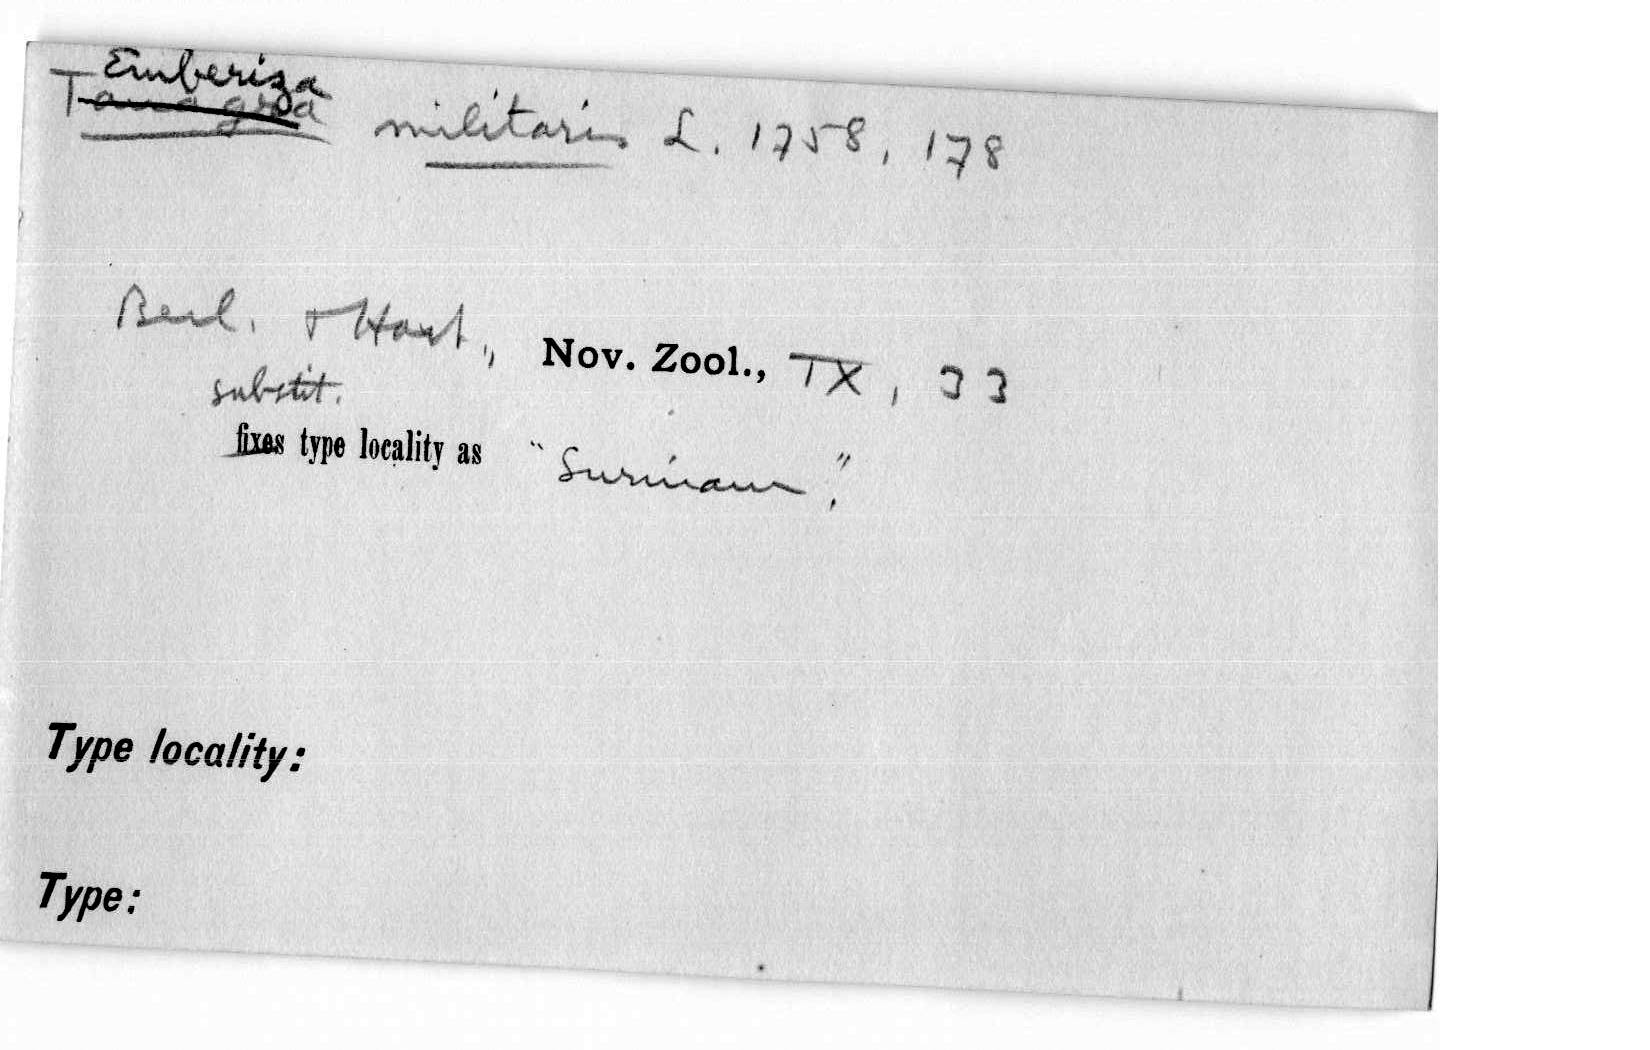 Emberiza
Tanagra militaris L. 1758, 178
Berl. & Hart., Nov. Zool., IX, 33
substit.
fixes type locality as "Surinam".
Type locality:
Type: